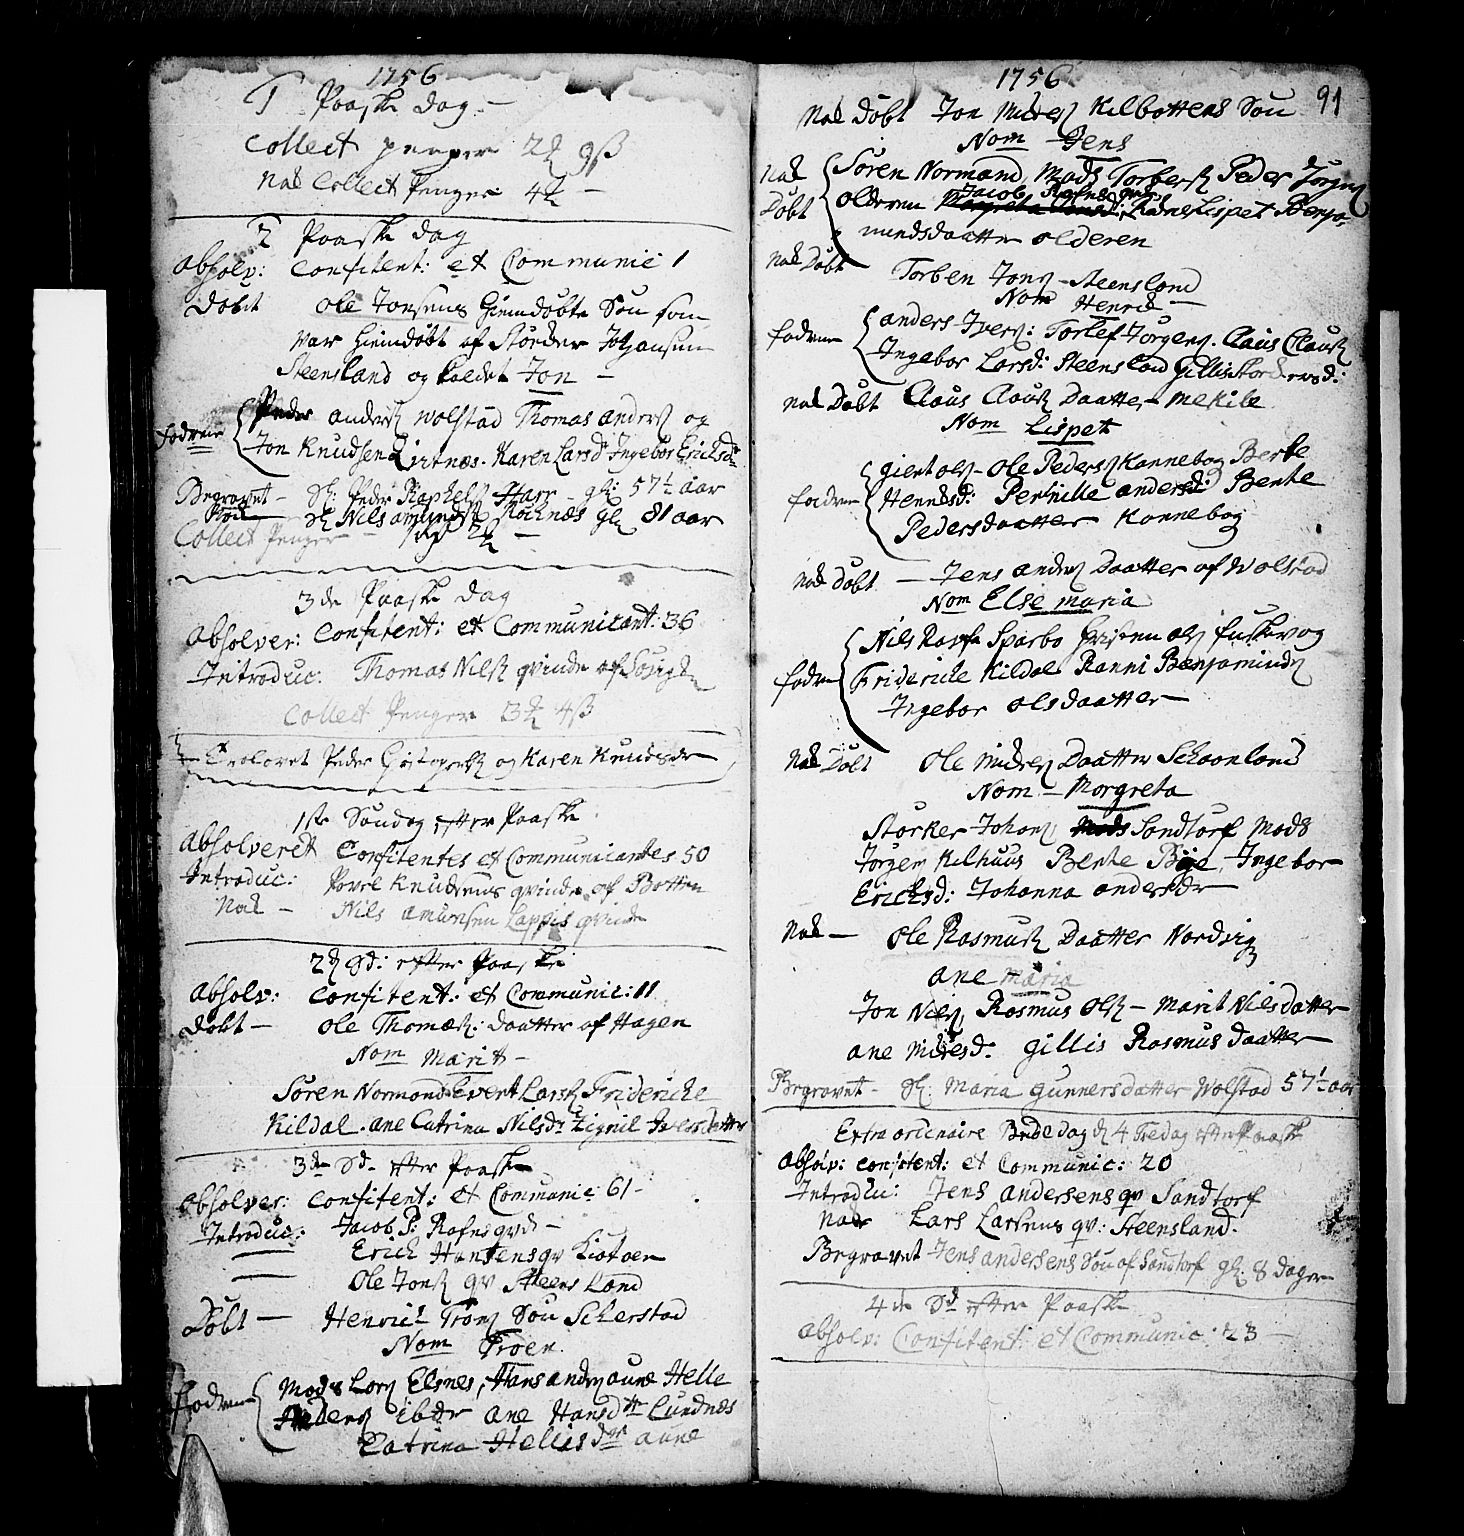 1756
1 Paaske dag –
Collect penger 2 9ß
Nok Collect Penger 4 –
2 Paaske dag
Absolv: Confitent: et Communic 1
Døbt Ole Jonsens hiemdøbte Søn som
var hiemdøbt af Størcher Johansen
Steensland og kaldet Jon –
fadrene Peder Anders Wolstad Thomas Anders og
Jon Knudsen Qvitnæs. Karen Larsd Ingebor Ericksd
Begravet – Peder Raphels Harr – gl: 57½ aar
Nils Amunds Kocknæs gl 81 aar
Collect Penger – 2 –
3de Paaske dag
Absolver: Confitent: et Communicant: 36
Introduc: Thomas Nils qvinde af
Collect Penger 3 4ß
Trolovet Peder og Karen Knudsdr
1ste Søndag efter Paaske
Absolveret Confitentes et Communicantes 50
Introduc: Povel Knudsens qvinde af Botten
Nok – Nils Amunsen Lappis qvinde
2 Sd: efter Paaske
Absolv: Confitent: et Communic: 11
Døbt – Ole Thomæs: daatter af Hagen
Nom Marit –
Søren Normand Evert Lars Fridericke
Kildal. Ane Catrina Nilsdr Zignil Iversdatter
3de Sd. efter Paaske
Absolver: Confitent: et Communic: 61 –
Introduc: Jacob P: Rafns qvd –
Erich Hansens qv Kiotøen
Ole Jons qv Steensland
Døbt – Henrich Trons Søn Scherstad
Nom Troen.
fadrene Mads Lars Elsnes, Hans Anders aune Helle
Anders Ane Hansdtr Lundnæs
Catrina Hellisdtr aune
1756
91
Nok Døbt Jon Mickels Kilbottens Søn
Nom Jens
Nok Døbt Søren Normand Mads Torbers Peder Jørgens
Jacob Rafns qvd
olderen Lispet Benja-
mindsdaatter olderen
Nok Døbt
Torben Jons – Steensland
Nom Henric –
fadrene Anders Ivers: Torlef Jørgens. Claus Claus
Ingebor Larsd: Steensland Gillis Storckersd:
Nok Døbt Claus Claus Daatter Mekile
Nom Lispet
fadrene Giert Ols – Ole Peders Konnebog Berte
Henrksd: Pernille andersd: Bente
Pedersdaatter Konnebog
Nok Døbt – Jens Anders Daatter af Wolstad
Nom Else maria
fadrene Nils Sparbo Ols
Fridericke Kildal Ranni Benjaminds
Ingebor olsdaatter –
Nok Døbt Ole Mickels Daatter Schoonland
Nom – Morgreta
Størker Johans Sandtorf Mads
Jørgen Kilhuus Bente Ingebor
Ericksd: Johanna andersdr
Nok – Ole Rasmus Daatter Nordvig
ane maria
Jon Niels Rasmus Ols – Marit Nilsdatter
ane Mickelsd. Gillis Rasmus daatter
Begravet – Sl: Maria Gunnersdatter Wolstad 57½ aar
Extra ordenaire Bededag d 4 Fredag efter Paaske
Absolv: confitent: et Communic: 20
Introduc: Jens Andersens qv Sandtorf
Nok Lars Larsens qv: Steensland.
Begravet Jens andersens Søn af Sandtorf gl: 8 dager
4de Sd efter Paaske
Absolv: Confitent: et Communic: 23 –